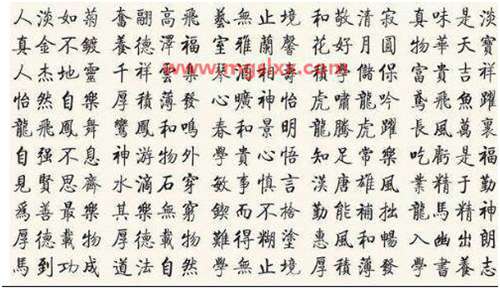 人淡如菊 奮翮高飛 藝無止境 和敬清寂 真味是淡
真金不鍍 養德澤福 室雅蘭馨 花好月圓 物華天寶
人杰地靈 千祥雲 富貴吉祥
www.mgslxx.com
怡然自樂 厚積薄發 心曠神怡 虎嘯龍吟 鳶飛魚躍
龍飛鳳舞 鸞鳳和鳴 春和景明 龍騰虎躍 長風萬裏
自强不息 神游物外 學貴心悟 知足常樂 吃虧是福
見賢思齊 水滴石穿 敏事慎言 漢唐雄風 業精于勤
爲善最樂 其樂無窮 鍥而不捨 勤能補拙 龍馬精神
厚德載物 厚德載物 難得糊塗 惠風和暢 入幽出朗
馬到功成 道法自然 學無止境 厚積薄發 學書養志